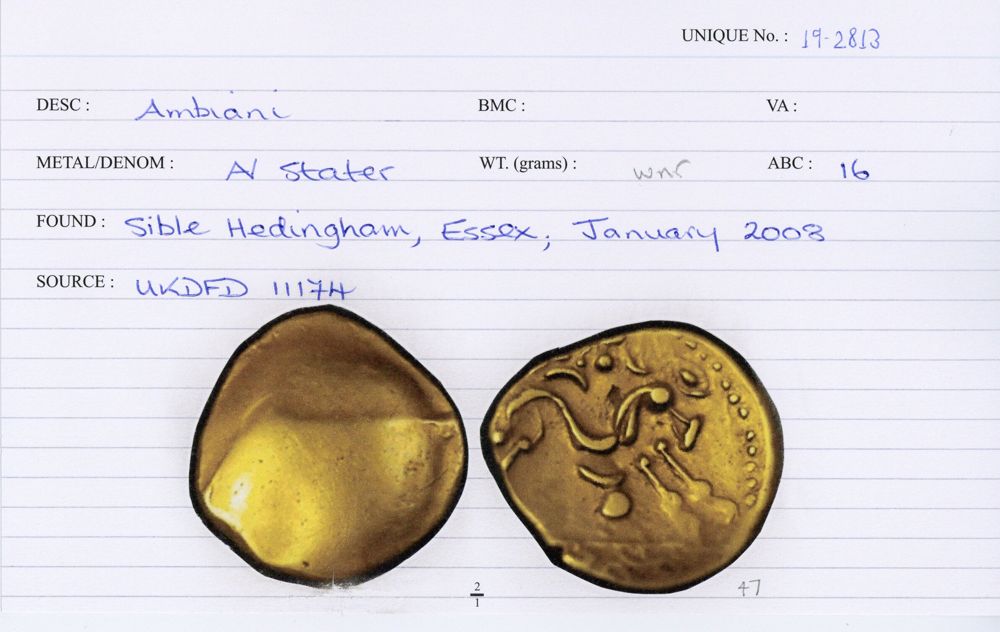 UNIQUE No. : 19-2813
DESC : Ambiani BMC : VA :
METAL/DENOM : AV Stater WT. (grams) : wnr ABC : 16
FOUND : Sible Hedingham, Essex; January 2008
SOURCE : UKDFD 11174
2/1
47